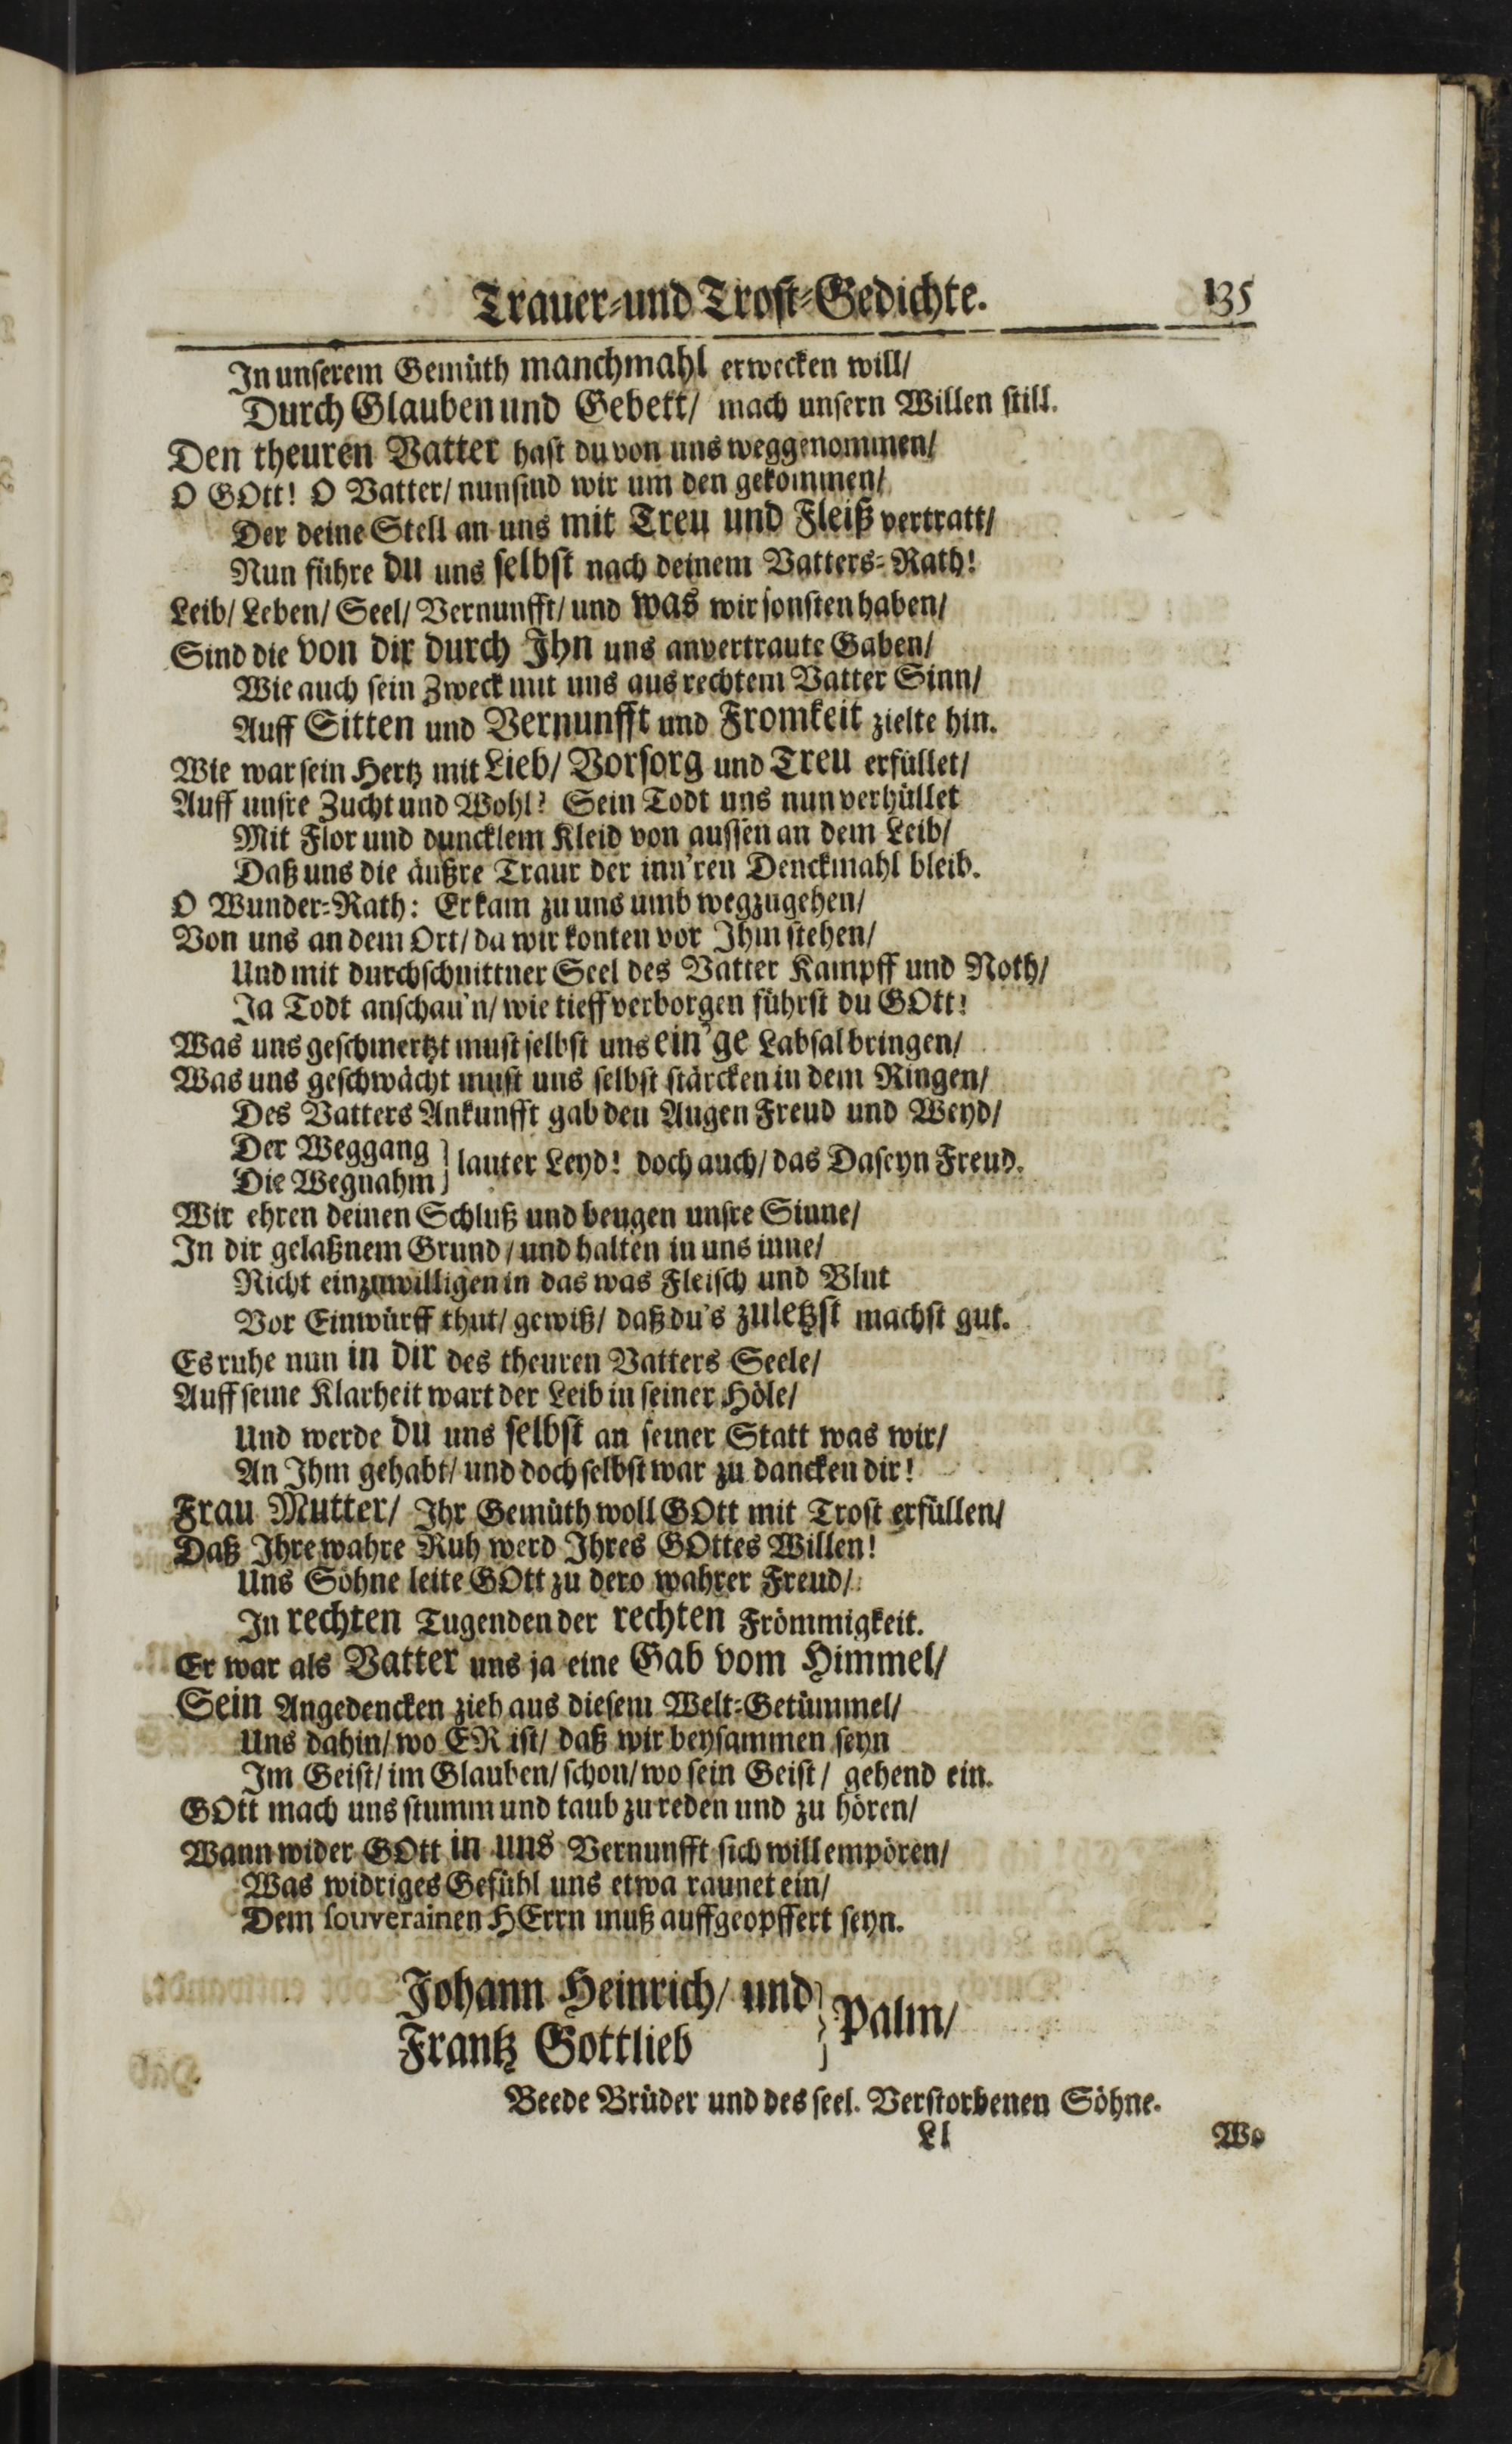 Trauer-und Trost-Gedichte. 135
In unserem Gemüth manchmahl erwecken will/
Durch Glauben und Gebett/ mach unsern Willen still.
Den theuren Vatter hast du von uns weggenommen/
O GOtt! O Vatter/ nun sind wir um den gekommen/
Der deine Stell an uns mit Treu und Fleiß vertratt/
Nun führe du uns selbst nach deinem Vatters-Rath!
Leib/ Leben/ Seel/ Vernunfft/ und was wir sonsten haben/
Sind die von dir durch Ihn uns anvertraute Gaben/
Wie auch sein Zweck mit uns aus rechtem Vatter Sinn/
Auff Sitten und Vernunfft und Fromkeit zielte hin.
Wie war sein Hertz mit Lieb/ Vorsorg und Treu erfüllet/
Auff unsre Zucht und Wohl? Sein Todt uns nun verhüllet
Mit Flor und duncklem Kleid von aussen an dem Leib/
Daß uns die äußre Traur der inn'ren Denckmahl bleib.
O Wunder-Rath: Er kam zu uns umb wegzugehen/
Von uns an dem Ort/ da wir konten vor Ihm stehen/
Und mit durchschnittner Seel des Vatter Kampff und Noth/
Ja Todt anschau'n/ wie tieff verborgen führst du GOtt!
Was uns geschmertzt must selbst uns ein'ge Labsal bringen/
Was uns geschwächt must uns selbst stärcken in dem Ringen/
Des Vatters Ankunfft gab den Augen Freud und Weyd/
Der Weggang
Die Wegnahm } lauter Leyd! doch auch/ das Daseyn Freud.
Wir ehren deinen Schluß und beugen unsre Sinne/
In dir gelaßnem Grund/ und halten in uns inne/
Nicht einzuwilligen in das was Fleisch und Blut
Vor Einwürff thut/ gewiß/ daß du's zuletzst machst gut.
Es ruhe nun in dir des theuren Vatters Seele/
Auff seine Klarheit wart der Leib in seiner Höle/
Und werde du uns selbst an seiner Statt was wir/
An Ihm gehabt/ und doch selbst war zu dancken dir!
Frau Mutter/ Ihr Gemüth woll GOtt mit Trost erfüllen/
Daß Ihre wahre Ruh werd Ihres GOttes Willen!
Uns Söhne leite GOtt zu dero wahrer Freud/
In rechten Tugenden der rechten Frömmigkeit.
Er war als Vatter uns ja eine Gab vom Himmel/
Sein Angedencken zieh aus diesem Welt-Getümmel/
Uns dahin/ wo ER ist/ daß wir beysammen seyn
Im Geist/ im Glauben/ schon/ wo sein Geist/ gehend ein.
GOtt mach uns stumm und taub zu reden und zu hören/
Wann wider GOtt in uns Vernunfft sich will empören/
Was widriges Gefühl uns etwa raunet ein/
Dem souverainen HErrn muß auffgeopffert seyn.
Johann Heinrich/ und
Frantz Gottlieb } Palm/
Beede Brüder und des seel. Verstorbenen Söhne.
Ll Wo